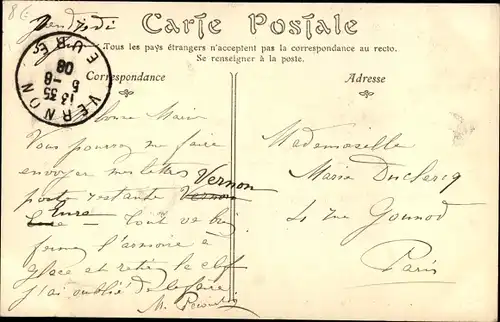 8€
Vendredi
Carte Postale
Tous les pays étrangers n'acceptent pas la correspondance au recto.
Se renseigner à la poste.
Correspondance
Adresse
VERNON
EURE
13 35
5 - 8
08
Bonne Main
Vous pourrez me faire
envoyer mes lettres Vernon
poste restante Vernon
Eure Eure Tout va bien
ferme l'armoire à
glace et retire la clef
j'ai oublié de le faire
M.
Mademoiselle
Marie Duclercq
rue Gounod
Paris